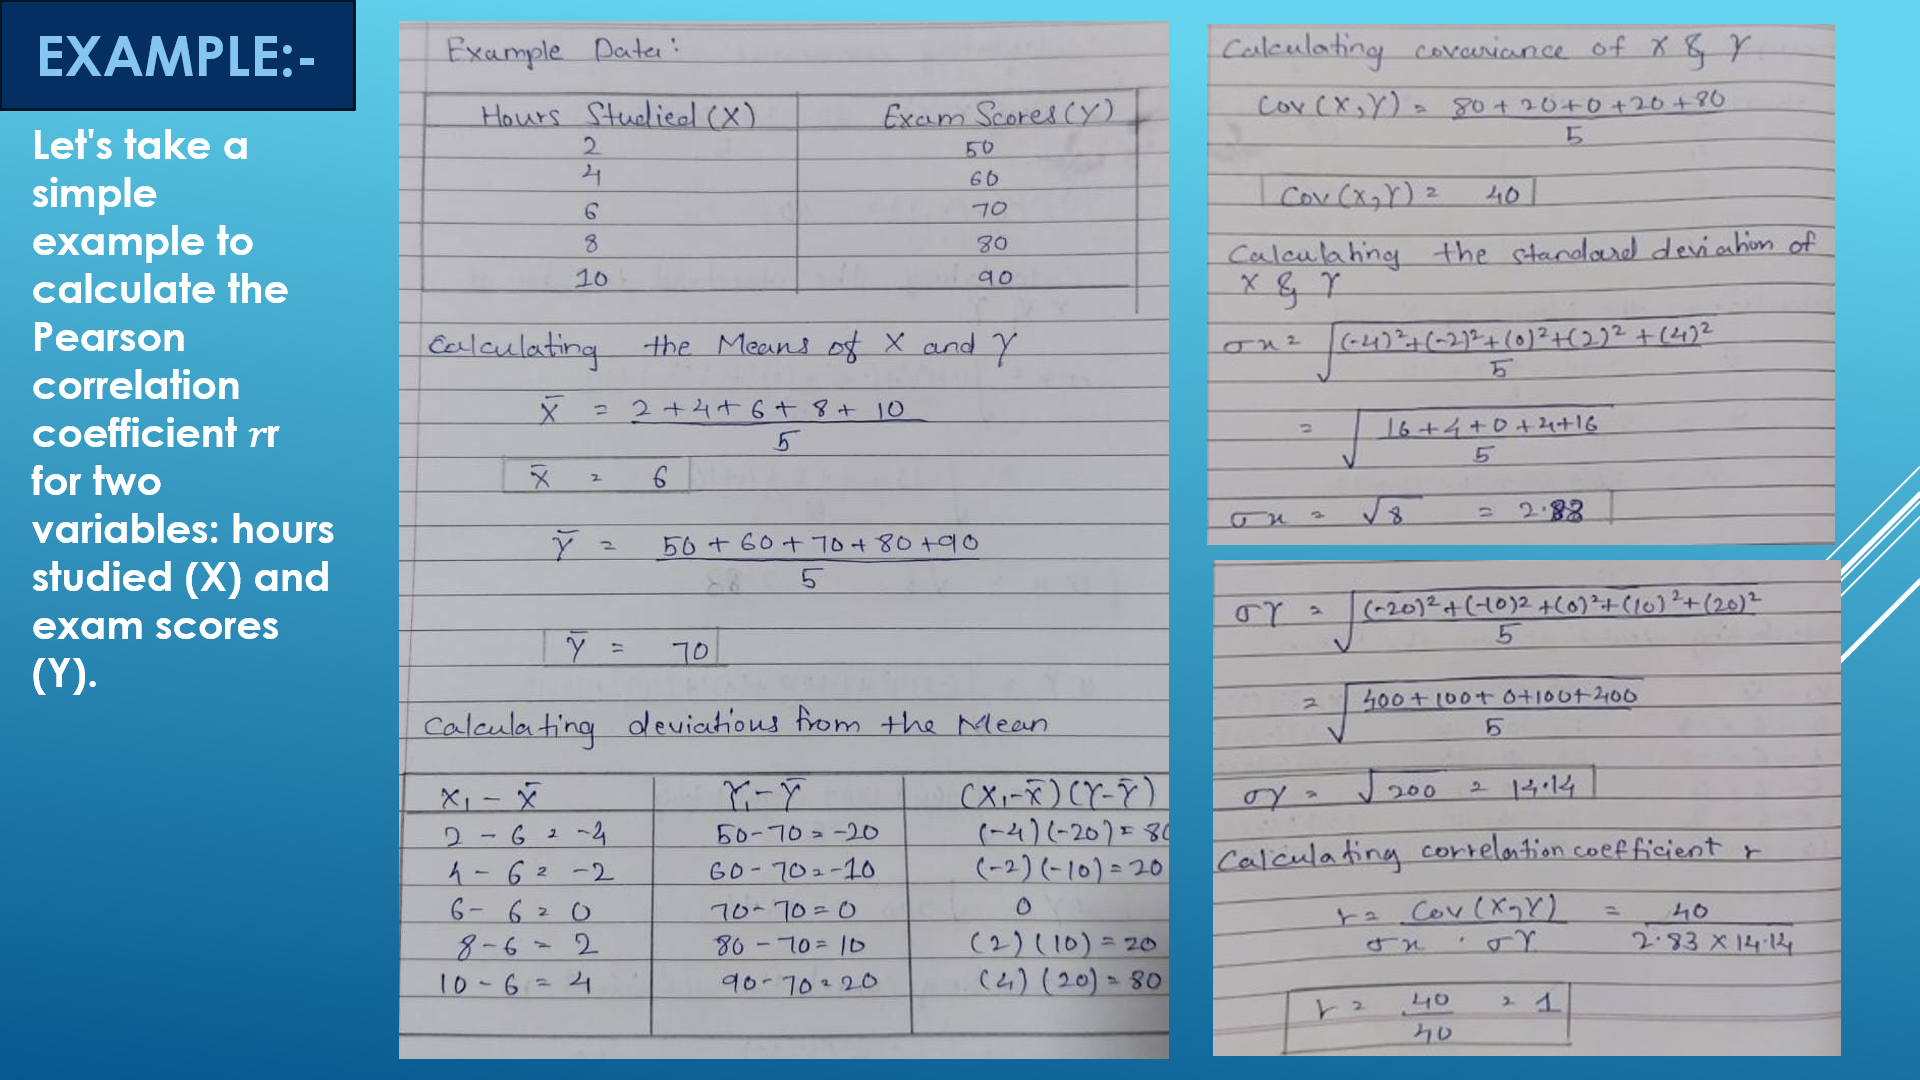 EXAMPLE:-
Let's take a
simple
example to
calculate the
Pearson
correlation
coefficient 𝑟r
for two
variables: hours
studied (X) and
exam scores
(Y).
Example Data:
Hours Studied (X) Exam Scores (Y)
2 50
4 60
6 70
8 80
10 90
Calculating the Means of X and Y
X̄ = 2 + 4 + 6 + 8 + 10
5
X̄ = 6
Ȳ = 50 + 60 + 70 + 80 + 90
5
Ȳ = 70
Calculating deviations from the Mean
X₁ - X̄ Y₁ - Ȳ (X₁-X̄)(Y-Ȳ)
2 - 6 = -4 50-70 = -20 (-4)(-20) = 80
4 - 6 = -2 60-70 = -10 (-2)(-10) = 20
6 - 6 = 0 70-70 = 0 0
8 - 6 = 2 80-70 = 10 (2)(10) = 20
10 - 6 = 4 90-70 = 20 (4)(20) = 80
Calculating covariance of X & Y
Cov(X,Y) = 80 + 20 + 0 + 20 + 80
5
Cov(X,Y) = 40
Calculating the standard deviation of
X & Y
σx = √(-4)²+(-2)²+(0)²+(2)²+(4)²
5
= √16+4+0+4+16
5
σx = √8 = 2.83
σY = √(-20)²+(-10)²+(0)²+(10)²+(20)²
5
= √400+100+0+100+400
5
σY = √200 = 14.14
Calculating correlation coefficient r
r = Cov(X,Y) = 40
σx . σY 2.83 X 14.14
r = 40 = 1
40